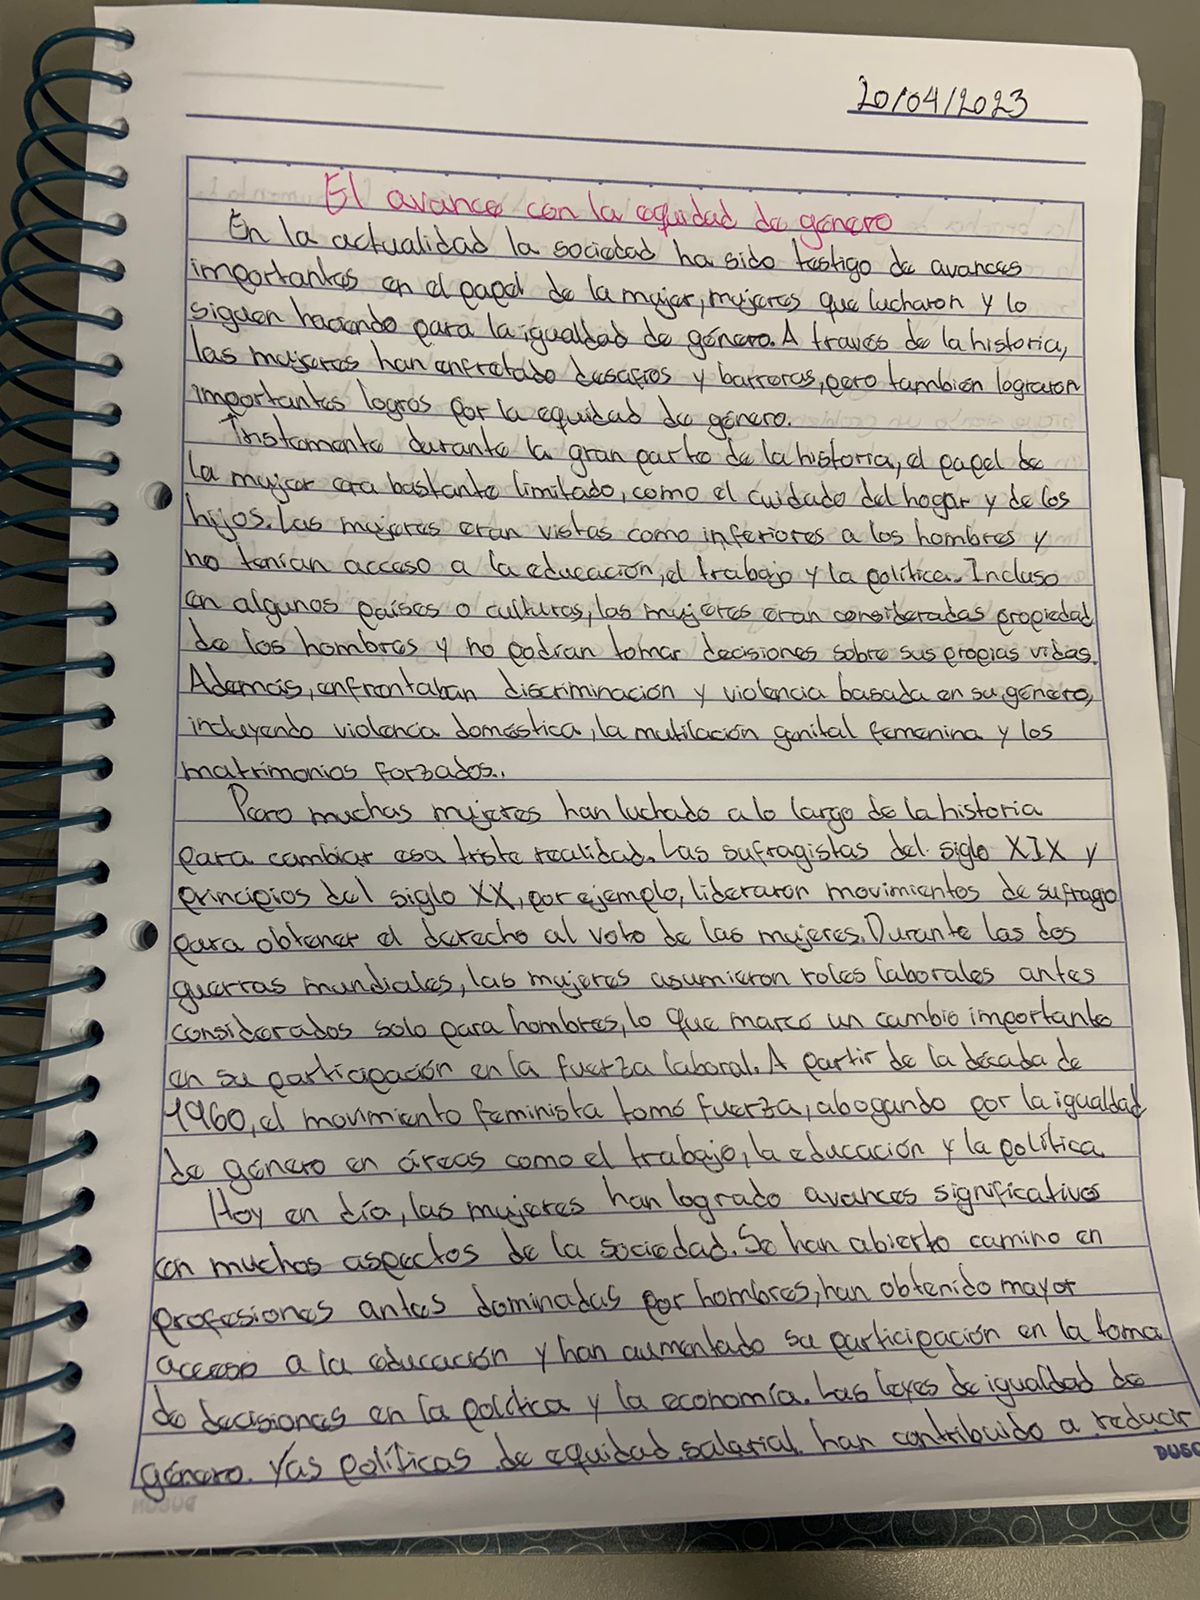 20/04/2023
El avance con la equidad de género
En la actualidad la sociedad ha sido testigo de avances
importantes en el papel de la mujer, mujeres que lucharon y lo
siguen haciendo para la igualdad de género. A través de la historia,
las mujeres han enfretado desafios y barreras, pero también lograron
importantes logros por la equidad de género.
Tristemente durante la gran parte de la historia, el papel de
la mujer era bastante limitado, como el cuidado del hogar y de los
hijos. Las mujeres eran vistas como inferiores a los hombres y
no tenían acceso a la educación, el trabajo y la política. Incluso
en algunos países o culturas, las mujeres eran consideradas propiedad
de los hombres y no podían tomar decisiones sobre sus propias vidas.
Además, enfrontaban discriminación y violencia basada en su género,
incluyendo violencia doméstica, la mutilación genital femenina y los
matrimonios forzados..
Pero muchas mujeres han luchado a lo largo de la historia
para cambiar esa triste realidad. Las sufragistas del siglo XIX y
principios del siglo XX, por ejemplo, lideraron movimientos de sufragio
para obtener el derecho al voto de las mujeres. Durante las dos
guerras mundiales, las mujeres asumieron roles laborales antes
considerados solo para hombres, lo que marcó un cambio importante
en su participación en la fuerza laboral. A partir de la década de
1960, el movimiento feminista tomó fuerza, abogando por la igualdad
de género en áreas como el trabajo, la educación y la política.
Hoy en día, las mujeres han logrado avances significativos
en muchos aspectos de la sociedad. Se han abierto camino en
profesiones antes dominadas por hombres, han obtenido mayor
acceso a la educación y han aumentado su participación en la toma
de decisiones en la política y la economía. Las leyes de igualdad de
género. Yas políticas de equidad salarial han contribuido a reducir